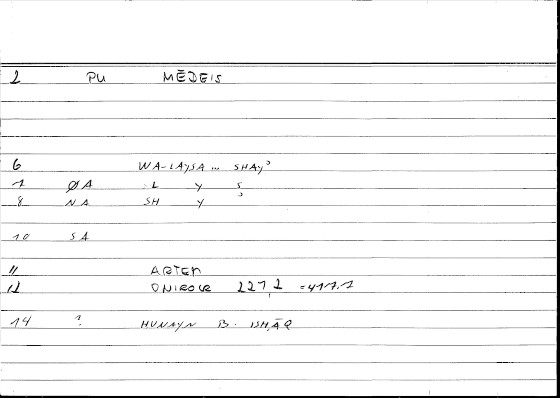 2 PU MĒDEIS
6 WA-LAYSA ... SHAYʾ
7 ØA L Y S
8 NA SH Y ʾ
10 SA
11 ARTEM
12 ONIROCR 227,2 = 417.2
14 ? HUNAYN B. ISḤĀQ